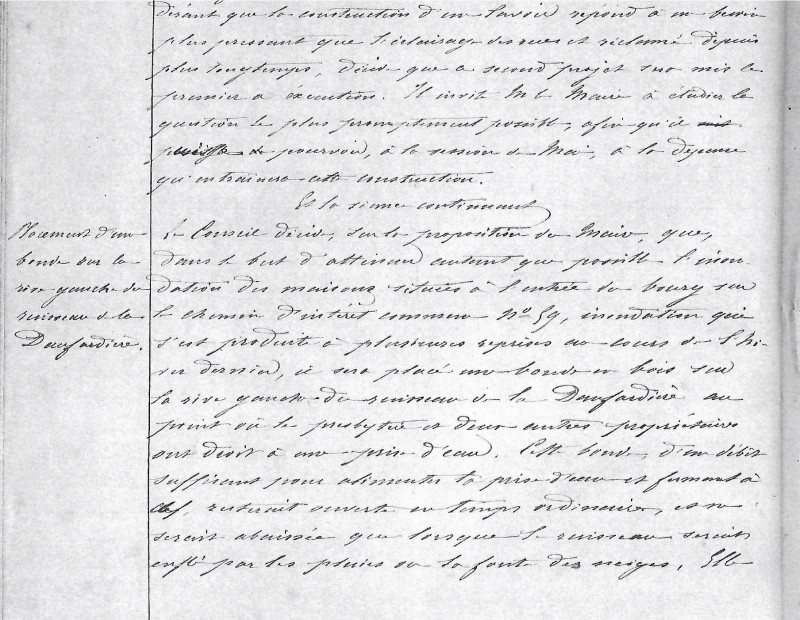 dérant que la construction d'un lavoir répond à un besoin
plus pressant que l'éclairage des rues et réclamé depuis
plus longtemps, décide que ce second projet sera mis le
premier à éxécution. Il invite M le Maire à étudier la
question le plus promptement possible, afin qu'il soit
puisse de pourvoir, à la session de Mai, à la dépense
qu'entraînera cette construction.
Et la séance continuant
Placement d'une
bonde sur la
rive gauche du
ruisseau de la
Daufardière.
Le Conseil décide, sur la proposition du Maire, que,
dans le but d'atténuer autant que possible l'inon-
dation des maisons situées à l'entrée du bourg sur
le chemin d'intérêt commun No 59, inondation qui
s'est produite à plusieurs reprises au cours de l'hi-
ver dernier, il sera placé une bonde en bois sur
la rive gauche du ruisseau de la Daufardière au
point où le presbytère et deux autres propriétaires
ont droit à une prise d'eau. Cette bonde, d'un débit
suffisant pour alimenter la prise d'eau et fermant à
clef, resterait ouverte en temps ordinaire, et ne
serait abaissée que lorsque le ruisseau serait
enflé par les pluies ou la fonte des neiges. Elle